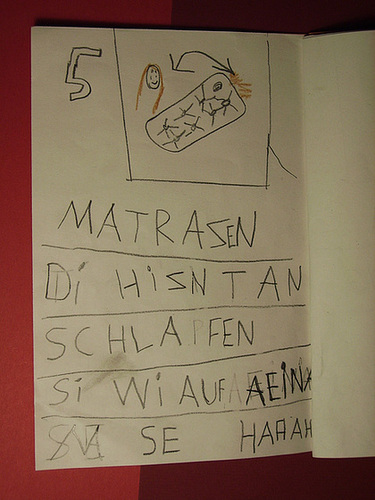 5
MATRASEN
Di HiSNTAN
SCHLAFEN
Si Wi AUF AEiNA
SE HAAAH